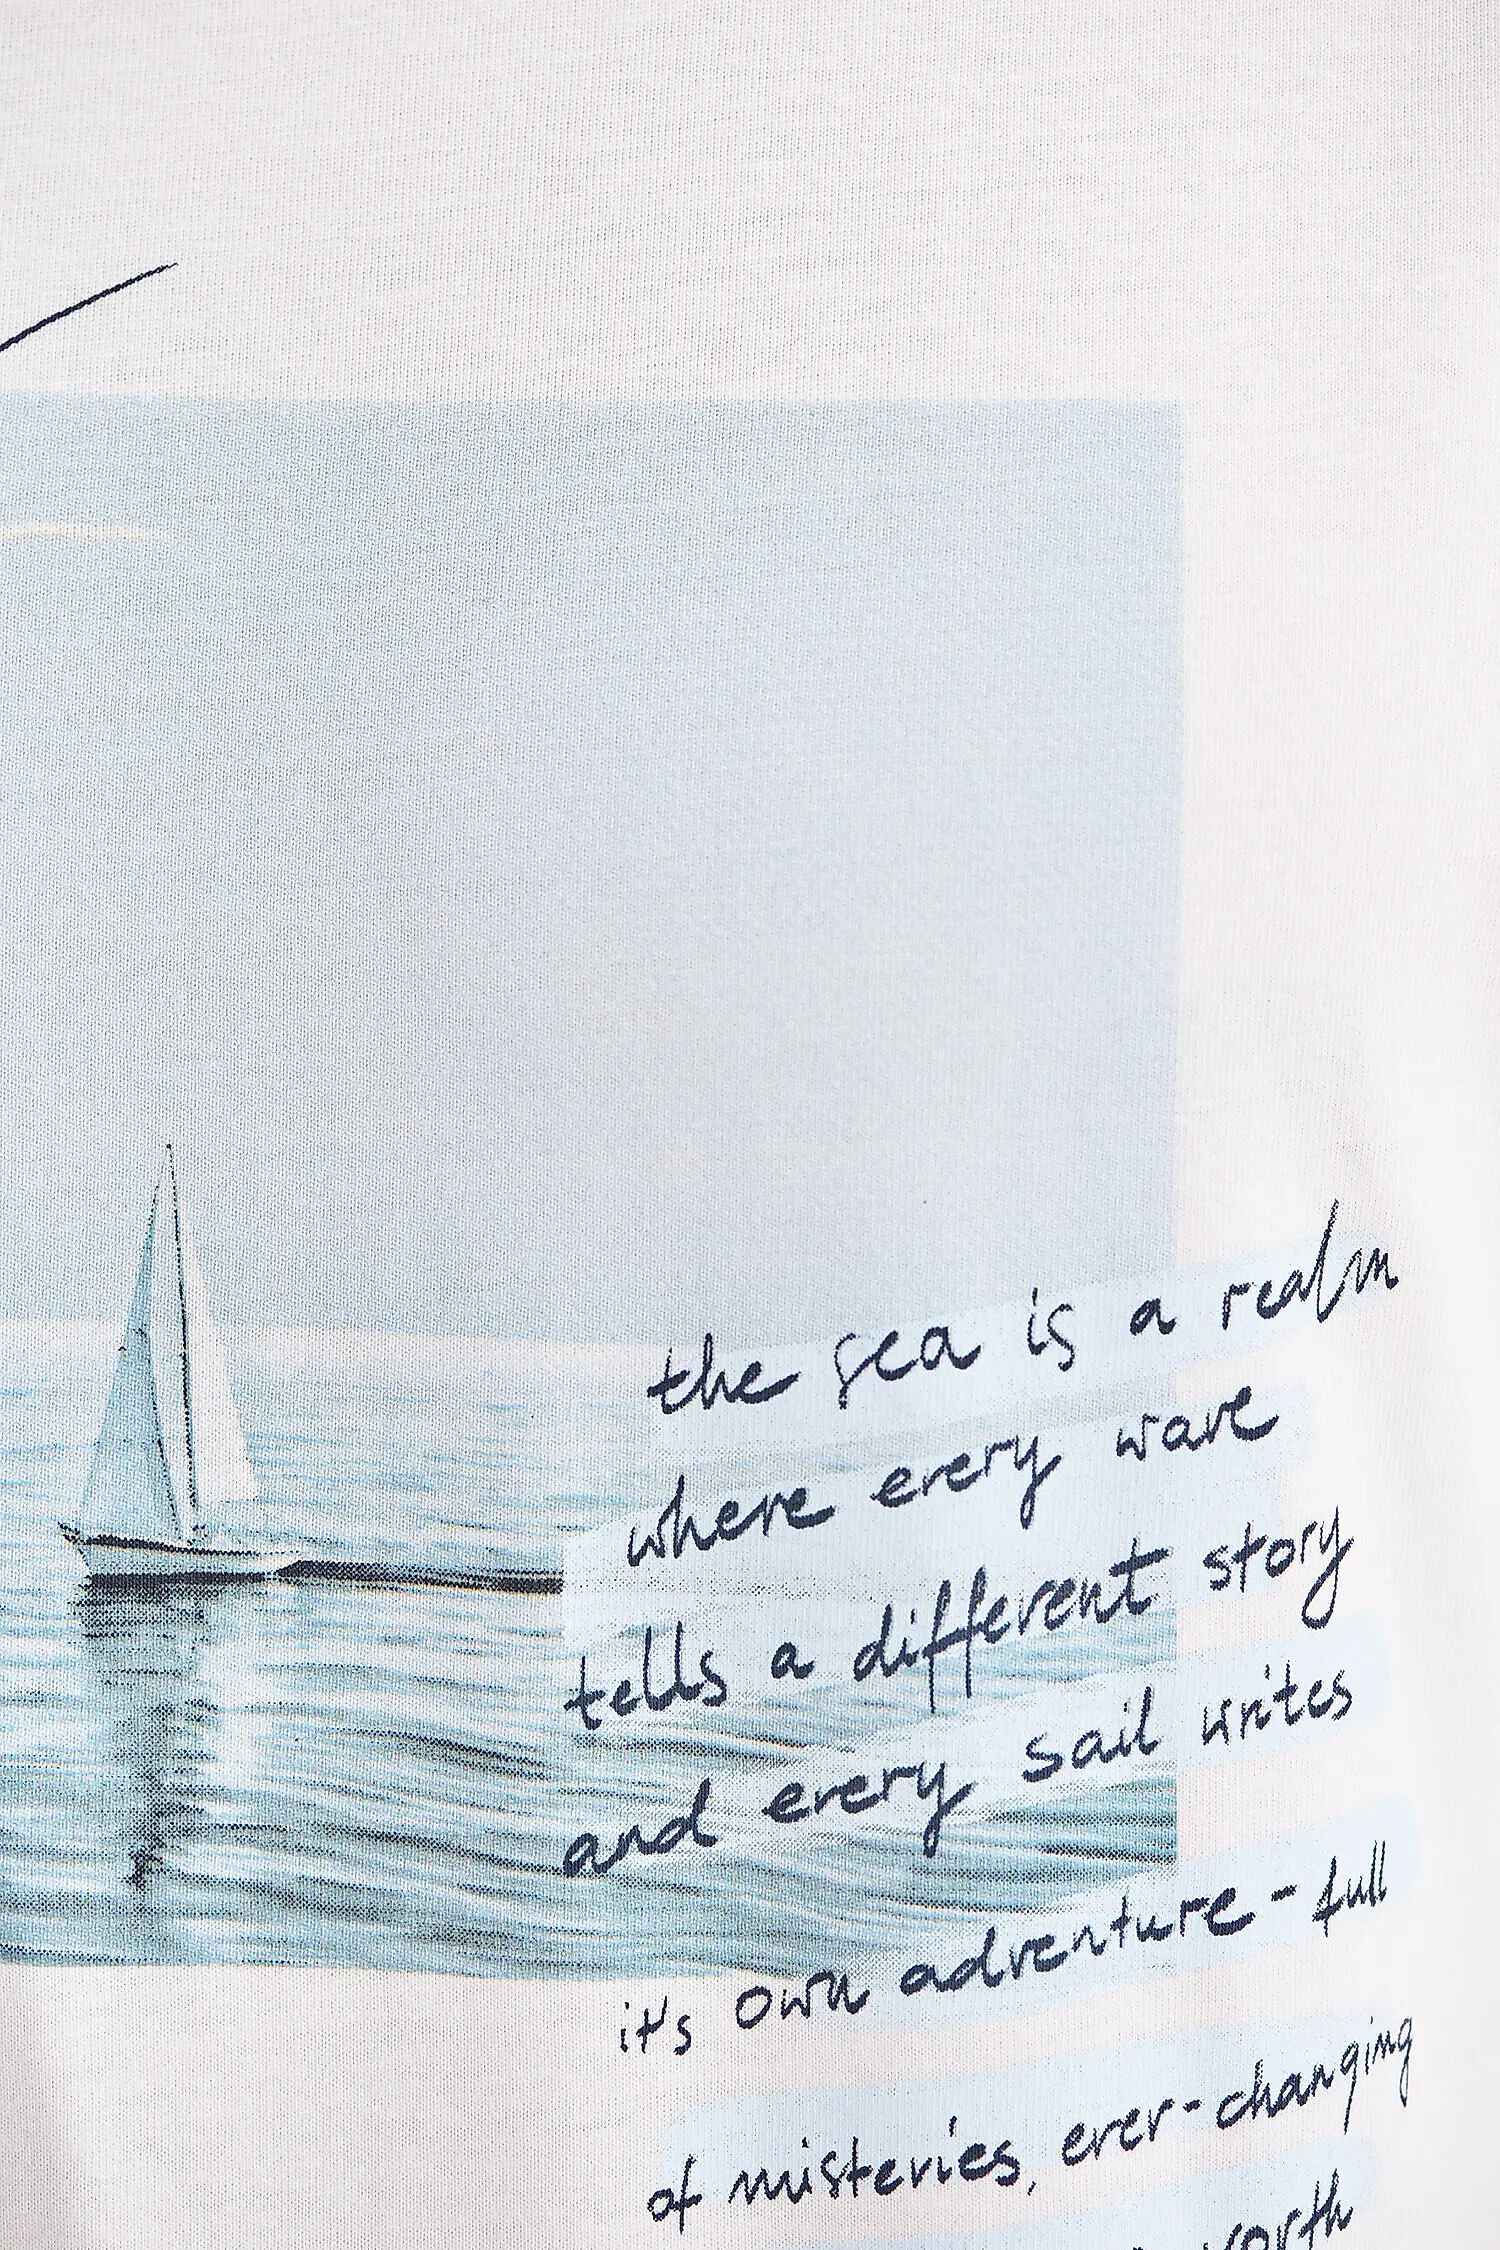 the sea is a realm
where every wave
tells a different story
and every sail writes
it's own adventure - full
of misteries, ever-changing
worth